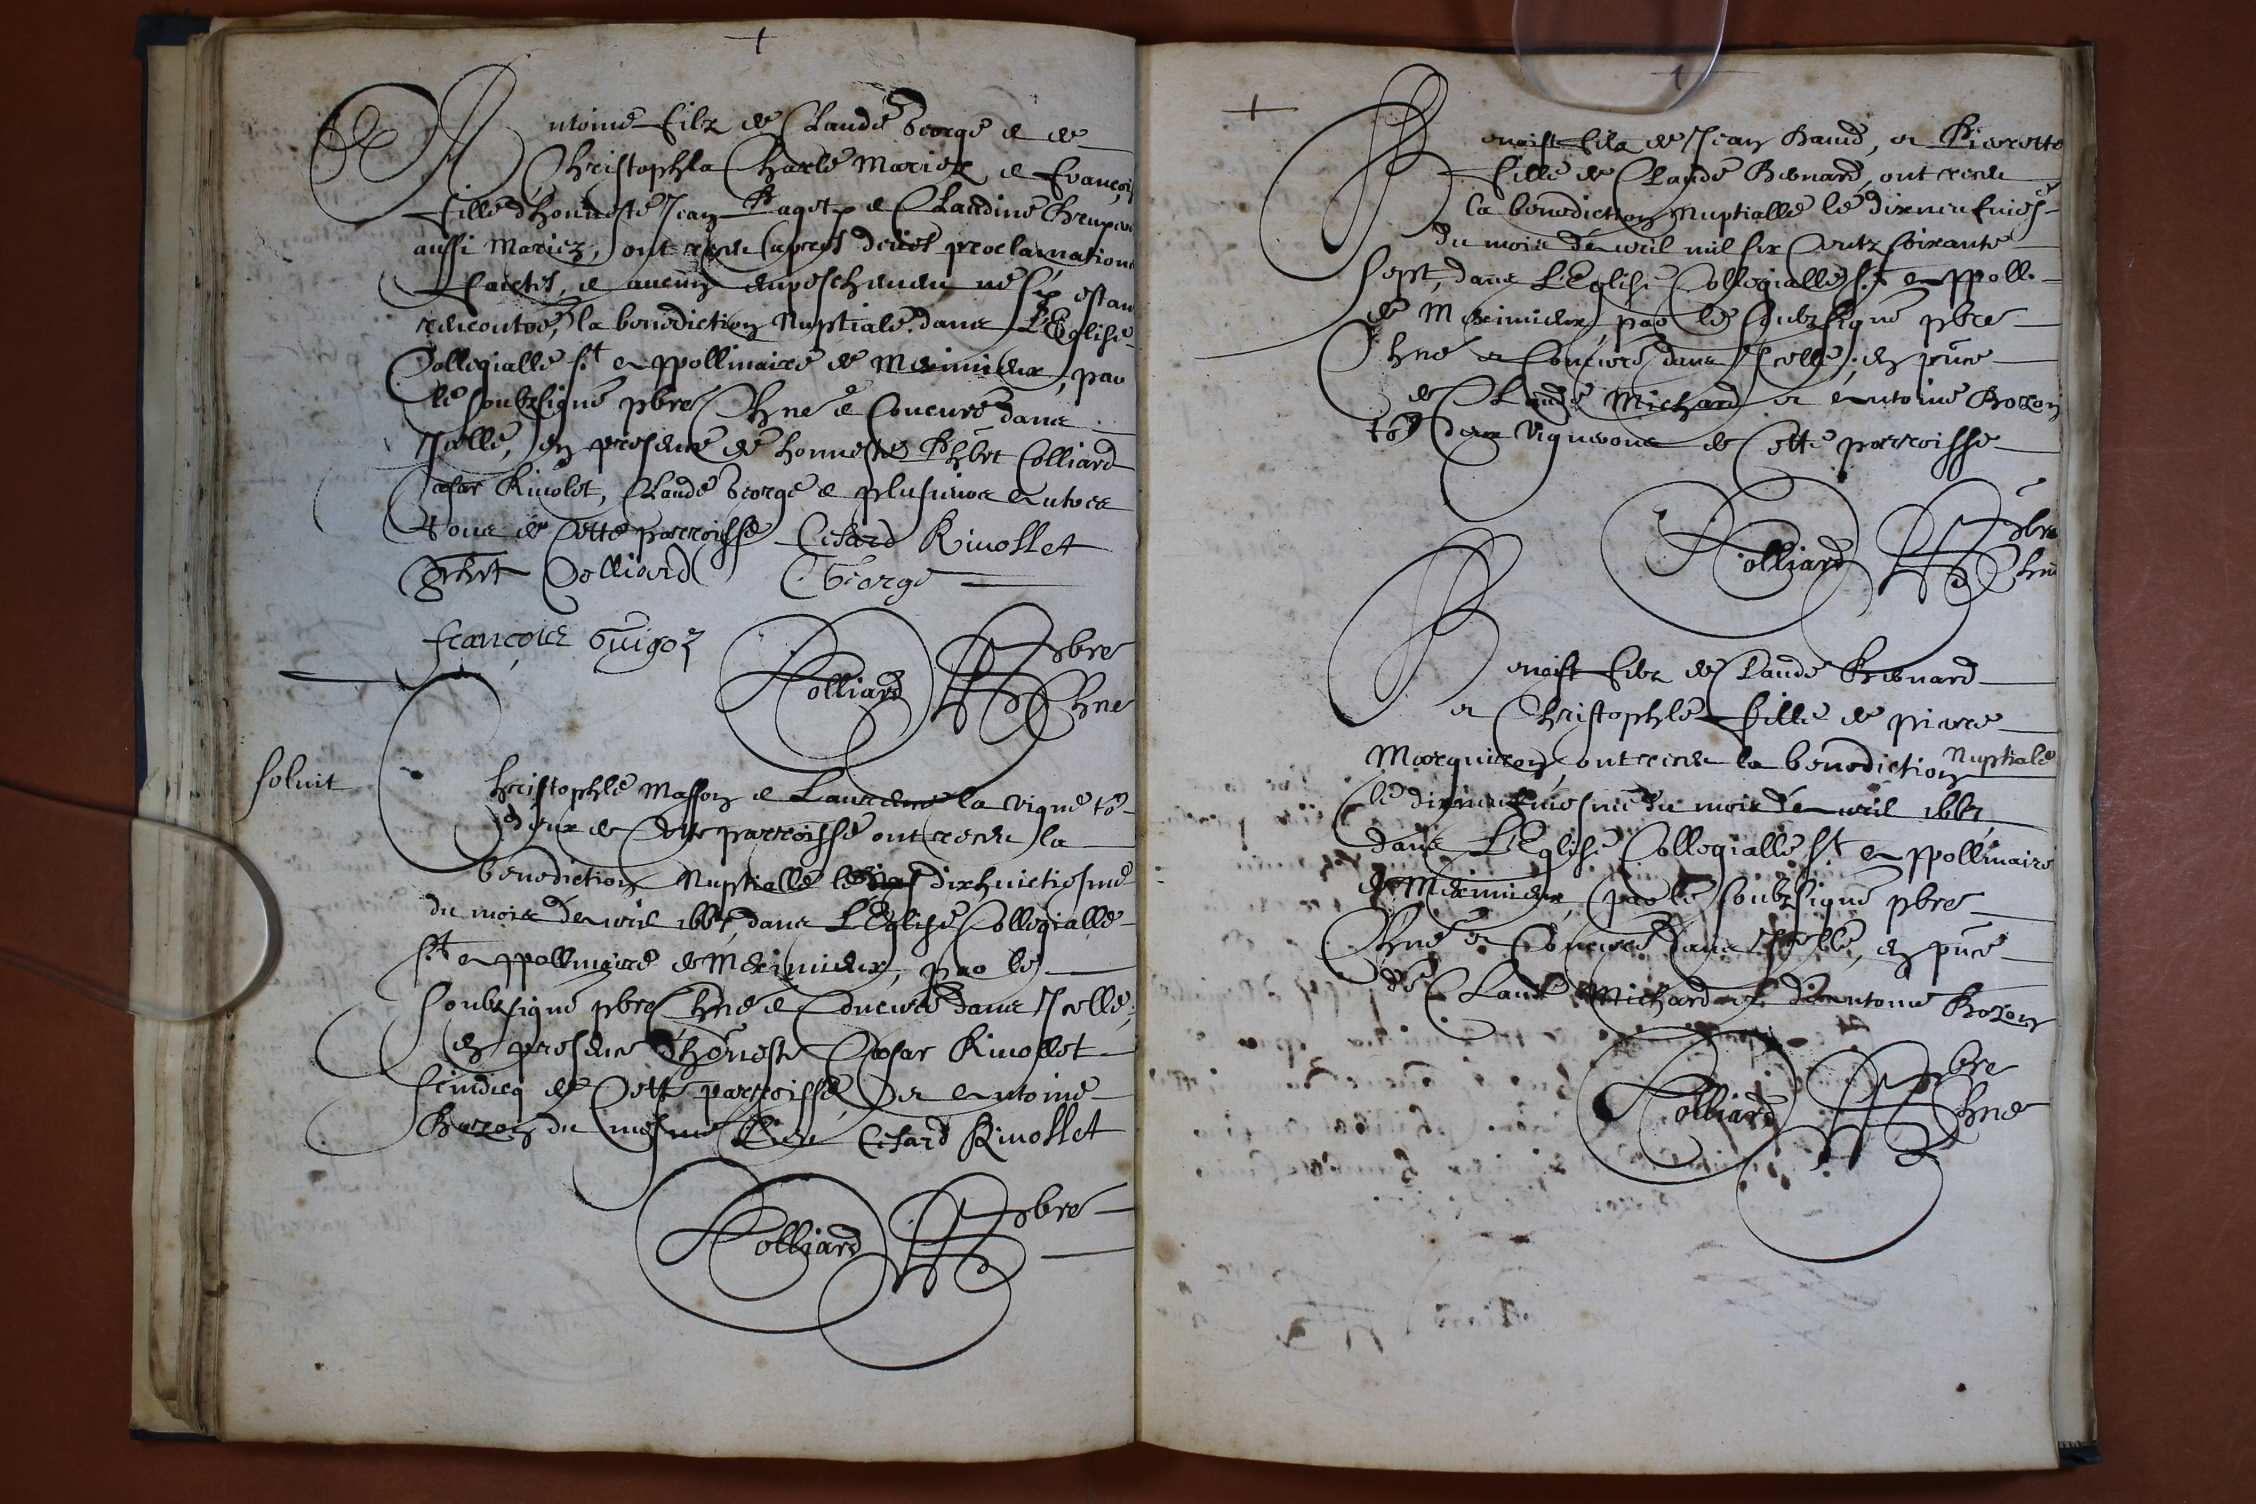 Antoine filz de Claude George et de
Christophla Charle Mariez, et Françoi
fille d'honneste Jean Paget et Claudine
aussi Mariez, ont receu apres deues proclamations
faictes, et aucung empeschement ne s'y estan
rencontré, la benediction Nuptiale dans L'Eglise
Collegialle St Appollinaire de Meximieux, par
le soubzsigné pbre Chne et Concuré dans
Icelle, en presence de honneste Phbrt Colliard
Cesar Rivolet, Claude George et plusieurs autres
tous de Cette parroisse Cesard Rivollet
Phbrt Colliard George
françois Guigoz
Colliard pbre
Chne
solvit
Christophle Masson et Laurence la vigne to9
deux de Cette parroisse ont receu la
benediction Nuptialle le dixhuictiesme
du mois d'Avril 1667, dans L'Eglise Collegialle
St Appollinaire de Meximieux, par le
soubzsigné pbre Chne et Concuré dans Icelle,
en presence d'honeste Cesar Rivollet
scindicq de Cette parroisse, Et Antoine
Bozon du mesme Lieu Cesard Rivollet
Colliard pbre
Benoist fils de Jean Baud, et Pierrette
fille de Claude Benard, ont receu
la benediction Nuptialle le dixneufvies-
du mois d'Avril mil six Centz soixante
sept, dans L'Eglise Collegialle St Appolli-
de Meximieux, par le soubzsigné pbre
Chne et Concuré dans Icelle, en pnce
de Claude Michard et Antoine Bozon
to9 deux vignerons de Cette parroisse
Colliard pbre
Chne
Benoist filz de Claude Benard
et Christophle fille de pierre
Marquiron, ont receu la benediction Nuptiale
le dixneufviesme du mois d'Avril 1667,
dans L'Eglise Collegialle St Appollinaire
de Meximieux, par le soubzsigné pbre
Chne et Concuré dans Icelle, en pnce
de Claude Michard et d'Antoine Bozon
Colliard pbre
Chne